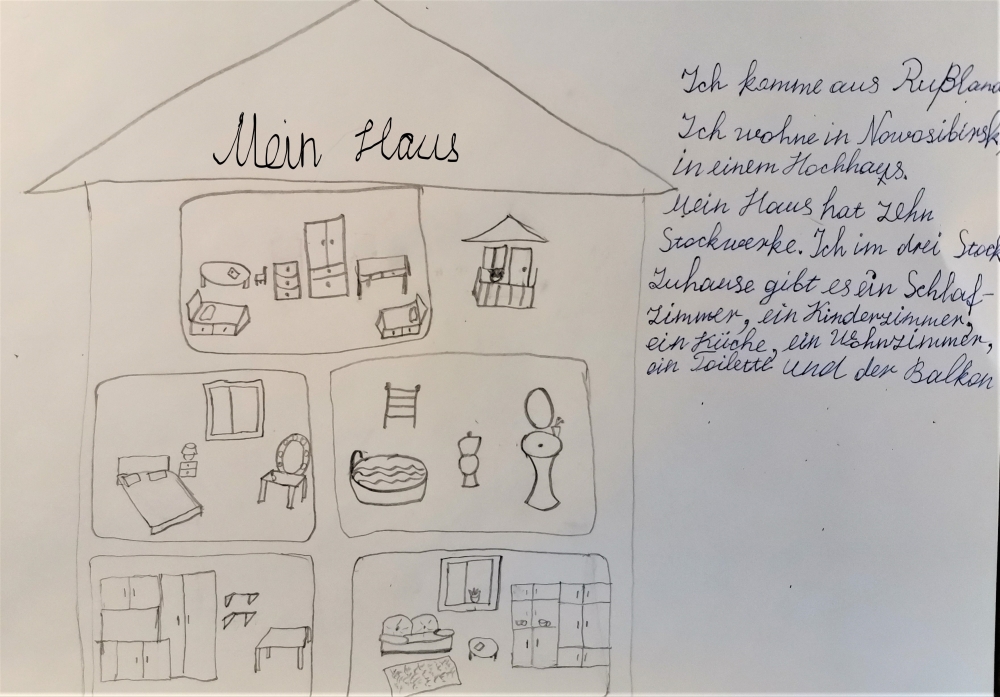 Mein Haus
Ich komme aus Rußland
Ich wohne in Nowosibirsk,
in einem Hochhaus.
Mein Haus hat zehn
Stockwerke. Ich im drei Stock
Zuhause gibt es ein Schlaf-
zimmer, ein Kinderzimmer,
ein Küche, ein Wohnzimmer,
ein Toilette und der Balkon